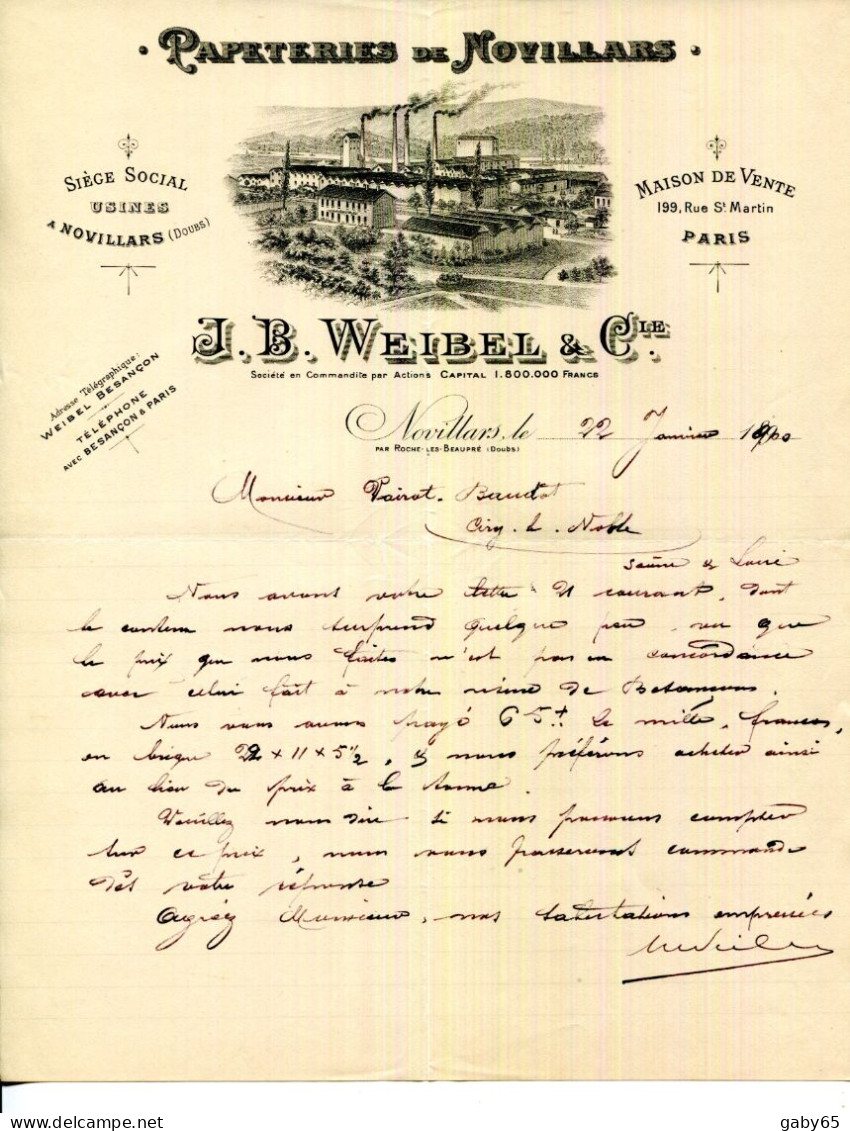 · PAPETERIES DE NOVILLARS ·
SIÈGE SOCIAL
USINES
A NOVILLARS (DOUBS)
MAISON DE VENTE
199, RUE St MARTIN
PARIS
J. B. WEIBEL & CIE.
Société en Commandite par Actions CAPITAL 1.800.000 FRANCS
Adresse Télégraphique:
WEIBEL BESANÇON
TÉLÉPHONE
AVEC BESANÇON & PARIS
Novillars, le 22 Janvier 1900
PAR ROCHE-LES-BEAUPRÉ (DOUBS)
Monsieur Vairet-Baudot
Ciry-le-Noble
Saône & Loire
Nous avons votre lettre 21 courant, dont
le contenu nous surprend quelque peu, vu que
le prix que nous faites n'est pas en concordance
avec celui fait à notre usine de Besançon.
Nous vous avons payé 65f le mille, franco,
en brique 22 x 11 x 5 1/2, & nous préférons acheter ainsi
au lieu du prix à la tonne.
Veuillez nous dire si nous pouvons compter
sur ce prix, nous vous passerons commande
dès votre réponse
Agréez Monsieur, nos salutations empressées
gaby65